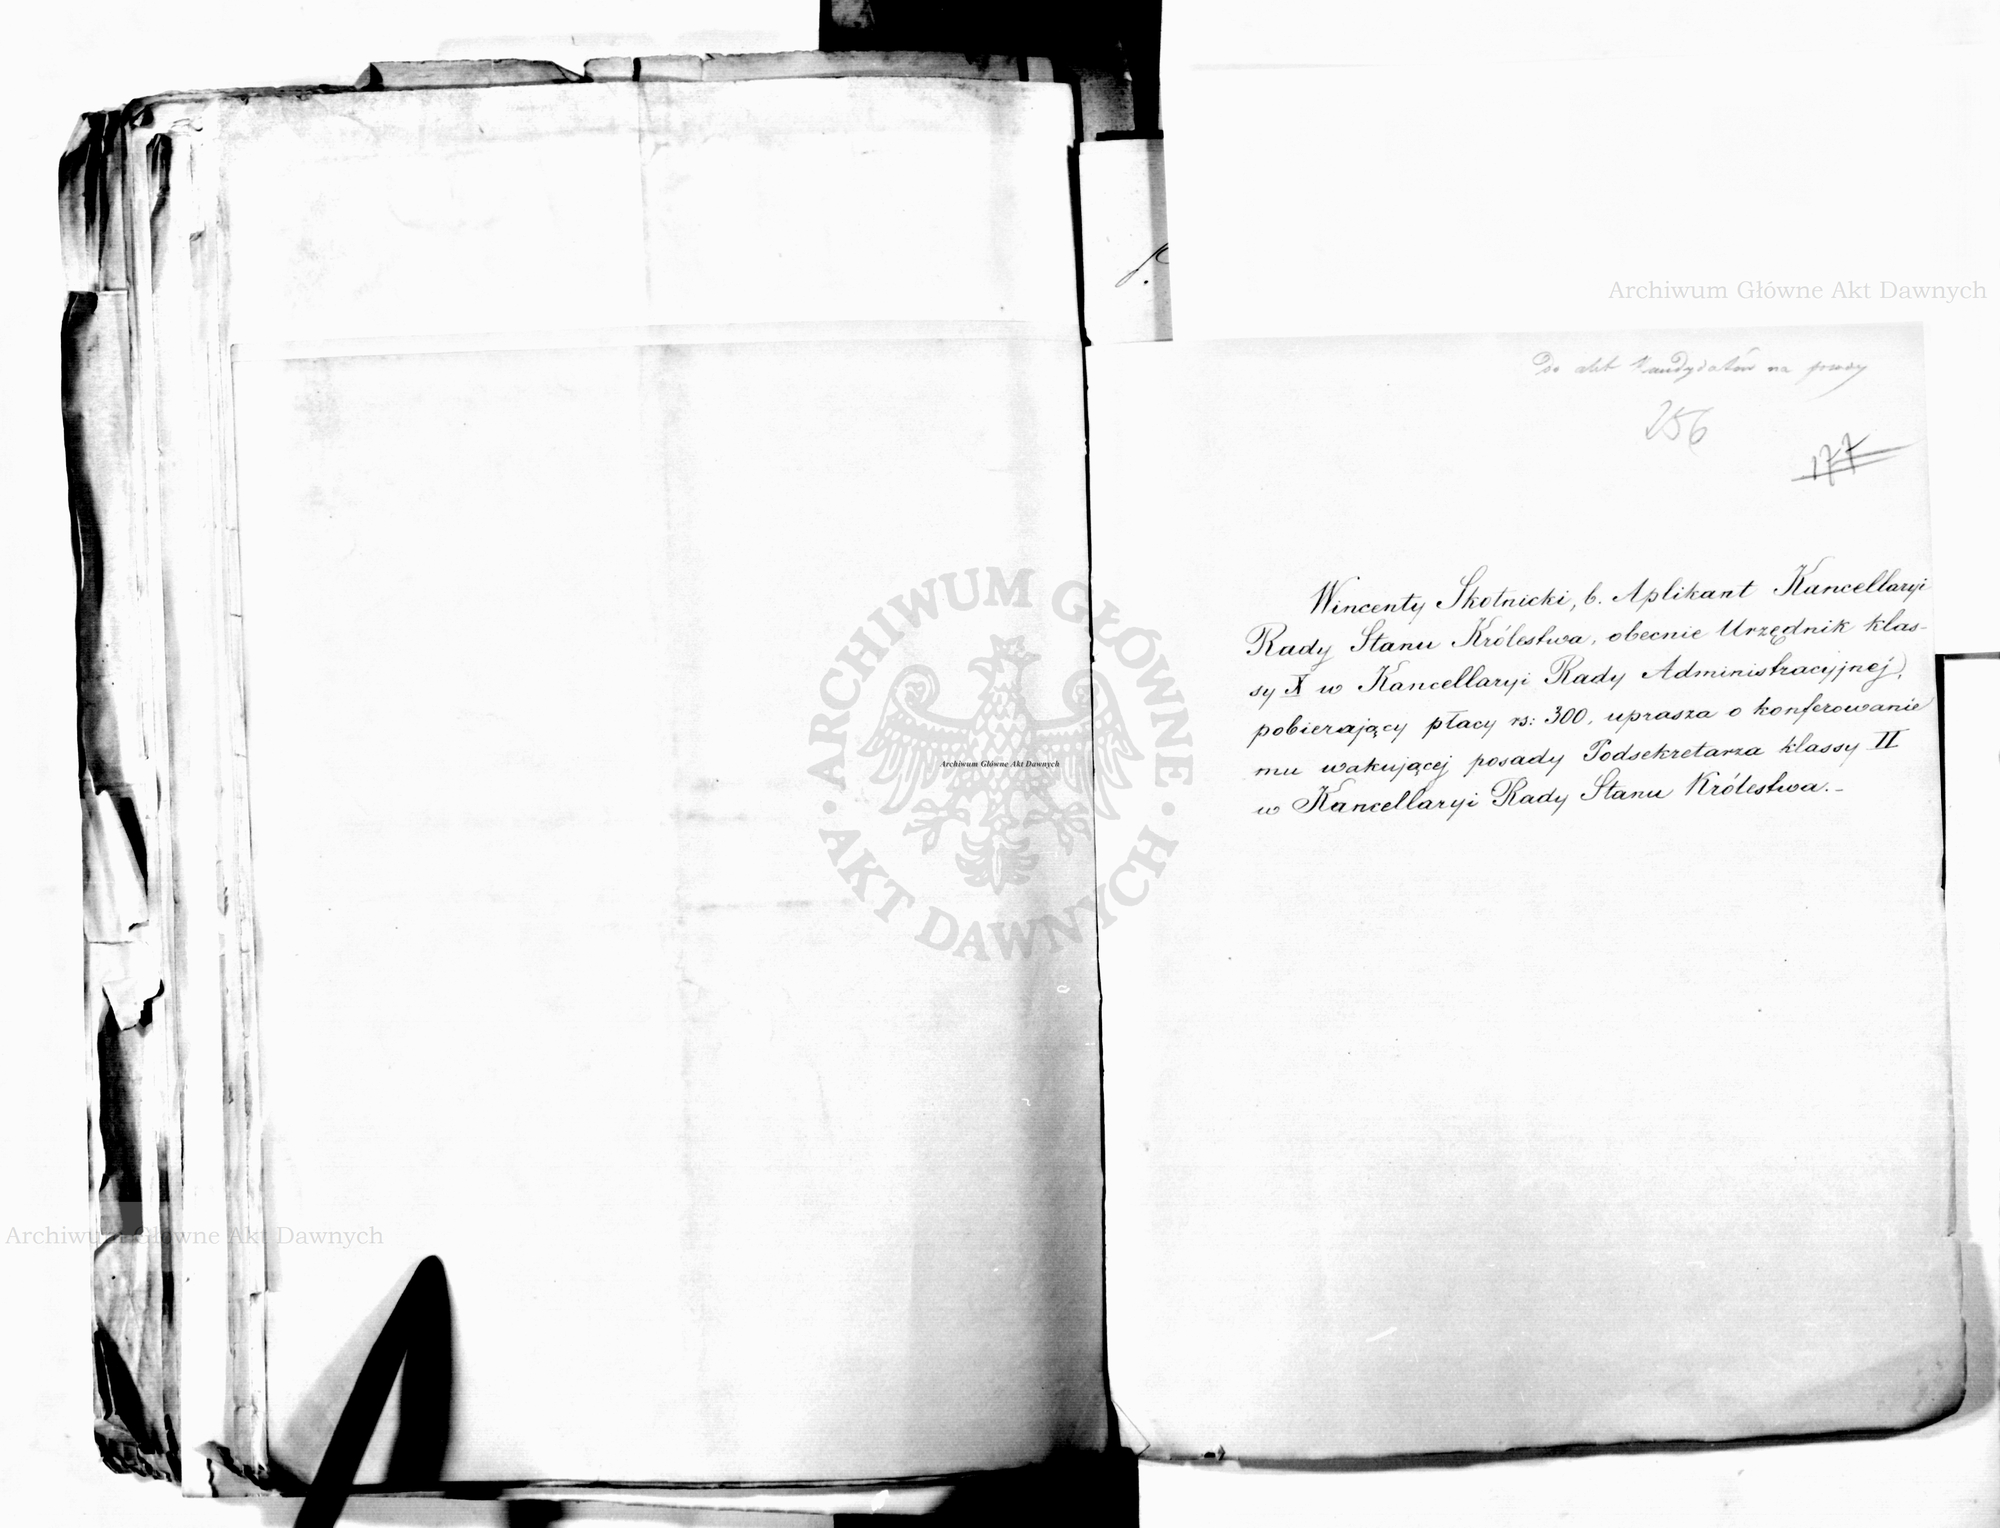 Do akt Kandydatów na posady
256
177
Wincenty Skotnicki, b. Aplikant Kancellaryi
Rady Stanu Królestwa, obecnie Urzędnik klas-
sy X w Kancellaryi Rady Administracyjnej,
pobierający płacy rs: 300, uprasza o konferowanie
mu wakującej posady Podsekretarza klassy II
w Kancellaryi Rady Stanu Królestwa.-
Archiwum Główne Akt Dawnych
ARCHIWUM GŁÓWNE · AKT DAWNYCH ·
Archiwum Główne Akt Dawnych
Archiwum Główne Akt Dawnych